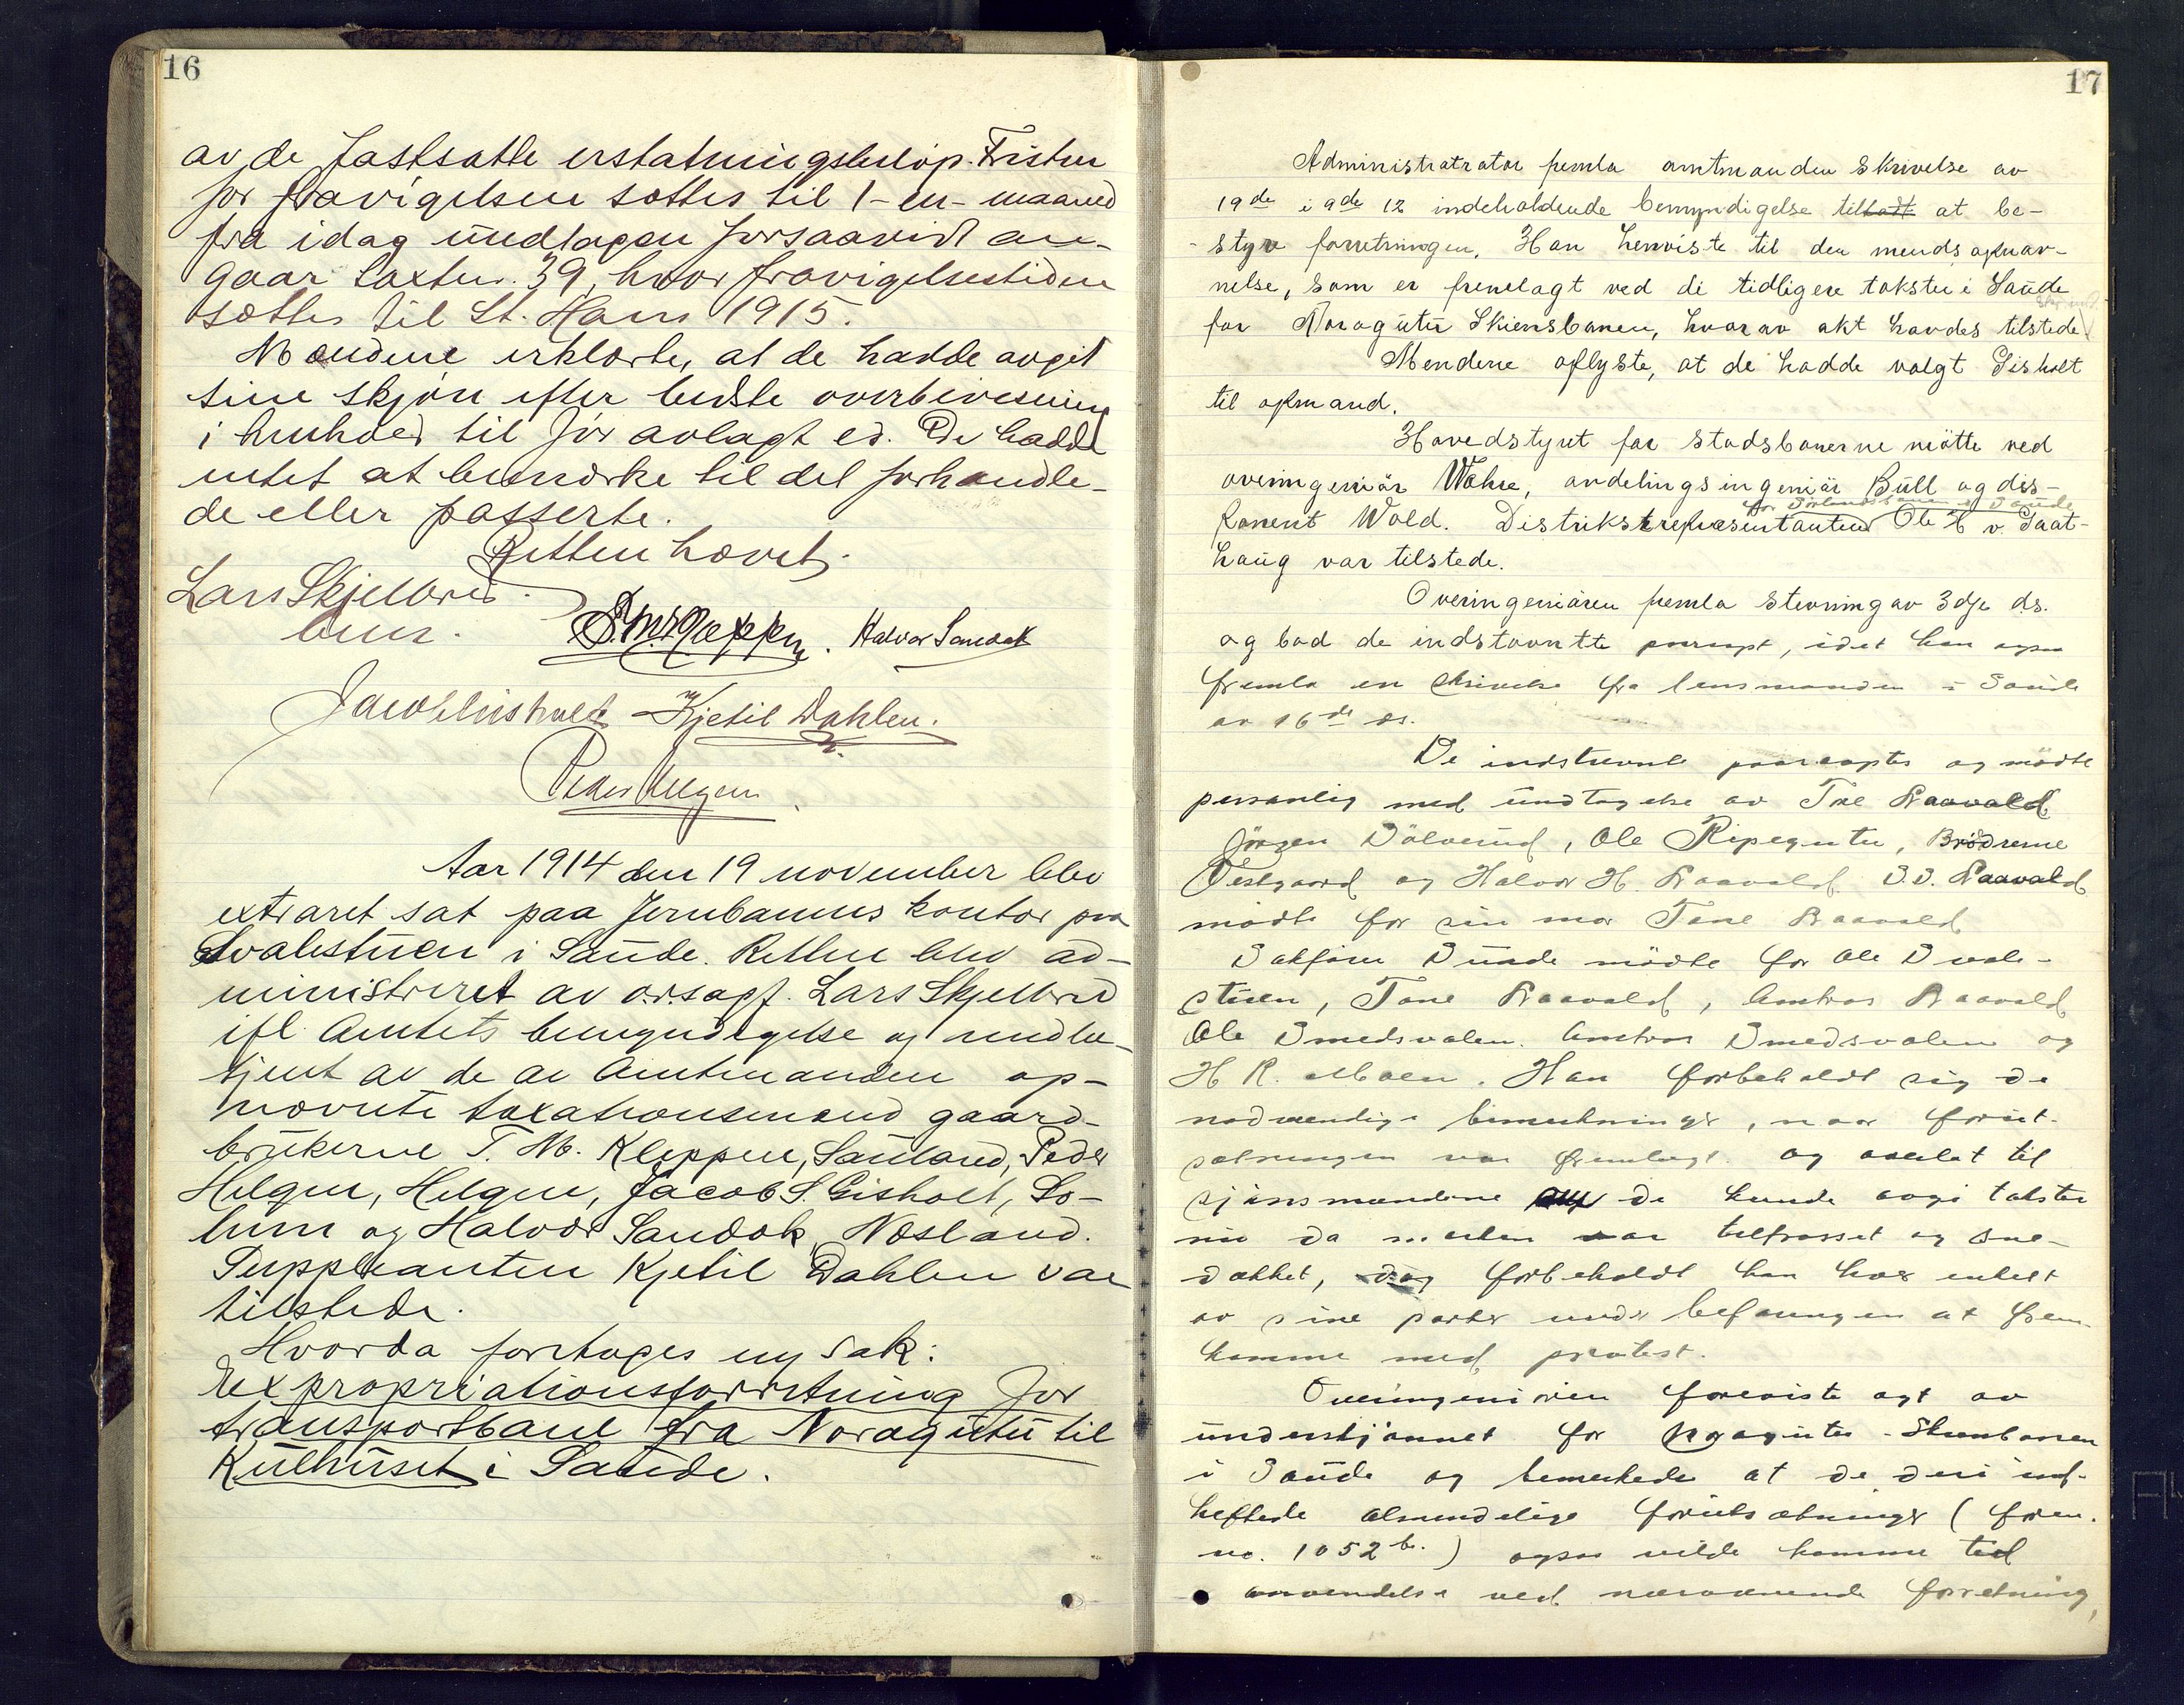 16
av de fastsatte erstatningsbeløp. Fristen
for fravigelsen sættes til 1-en-maaned
fra idag undtagen forsaavidt an-
gaar taxtnr. 39, hvor fravigelsestiden
sættes til St. Hans 1915.
Mændene erklærte, at de hadde avgit
sine skjøn efter bedste overbevisning
i henhold til før avlagt ed. De hadde
intet at bemærke til det forhandle-
de eller passerte.
Retten hævet.
Lars Skjelbred
T. M. Kleppen. Halvor Sandok
Jacob Gisholt Kjetil Dahlen.
Peder Helgen
Aar 1914 den 19 november blev
extraret sat paa Jernbanens kontor paa
Svalestuen i Saude. Retten blev ad-
ministreret av o.r.sagf. Lars Skjelbred
ifl. Amtets bemyndigelse og medbe-
tjent av de av Amtmanden op-
nævnte taxationsmænd gaard-
brukerne T. M. Kleppen, Sauland, Peder
Helgen, Helgen, Jacob S. Gisholt, So-
lum og Halvor Sandok, Næsland.
Suppleanten Kjetil Dahlen var
tilstede.
Hvorda foretoges ny sak:
Expropriationsforretning for
transportbane fra Noragutu til
Kulhuset i Saude.
17
Administratrator fremla amtmanden skrivelse av
19de i 9de 12 indeholdende bemyndigelse til at be-
styre forretningen. Han henviste til den mendsopnav-
nelse, som er fremlagt ved de tidligere takster i Saude
for Noragutu Skiensbanen, hvorav akt havdes tilstede.
Mendene oplyste, at de hadde valgt Gisholt
til opmand.
Hovedstyret for statsbanerne mötte ved
overingeniör Wahre, avdelingsingeniör Bull og dis-
ponent Wold. Distriksrepresentanten for Sörlandsbanen i Saude Ole H v. Saat-
haug var tilstede.
Overingeniören fremla stevning av 3dje ds.
og bad de indstevntte paaropt, idet han ogsaa
fremla en skrivelse fra lensmanden i Saude
av 16de ds.
De indstevnte paaroptes og mödte
personlig med undtagelse av Tone Raavald
Jörgen Dölverud, Ole Ripegutu, Brødrene
Vestgaard og Halvor H. Raavald. S. S. Raavald
mödte for sin mor Tone Raavald
Sakförer Sunde mödte for Ole Svale-
stuen, Tone Raavald, Amtros Raavald
Ole Smedsvalen. Amtros Smedsvalen og
H R. Moen. Han forbeholdt sig de
nødvendige bemerkninger, naar forut-
sætningen var fremlagt og overlot til
skjönsmendene om de kunde avgi takster
nu da marken var tilfrosset og sne-
dækket, dog forbeholdt han hver enkelt
av sine parter under befaringen at frem-
komme med protest.
Overingeniören foreviste agt av
underskjönnet for Noragutu - Skiensbanen
i Saude og bemerkede at de deri ind-
heftede almindelige forutsætninger (form.
no. 1052 b.) ogsaa vilde komme til
anvendelse ved nærværende forretning,